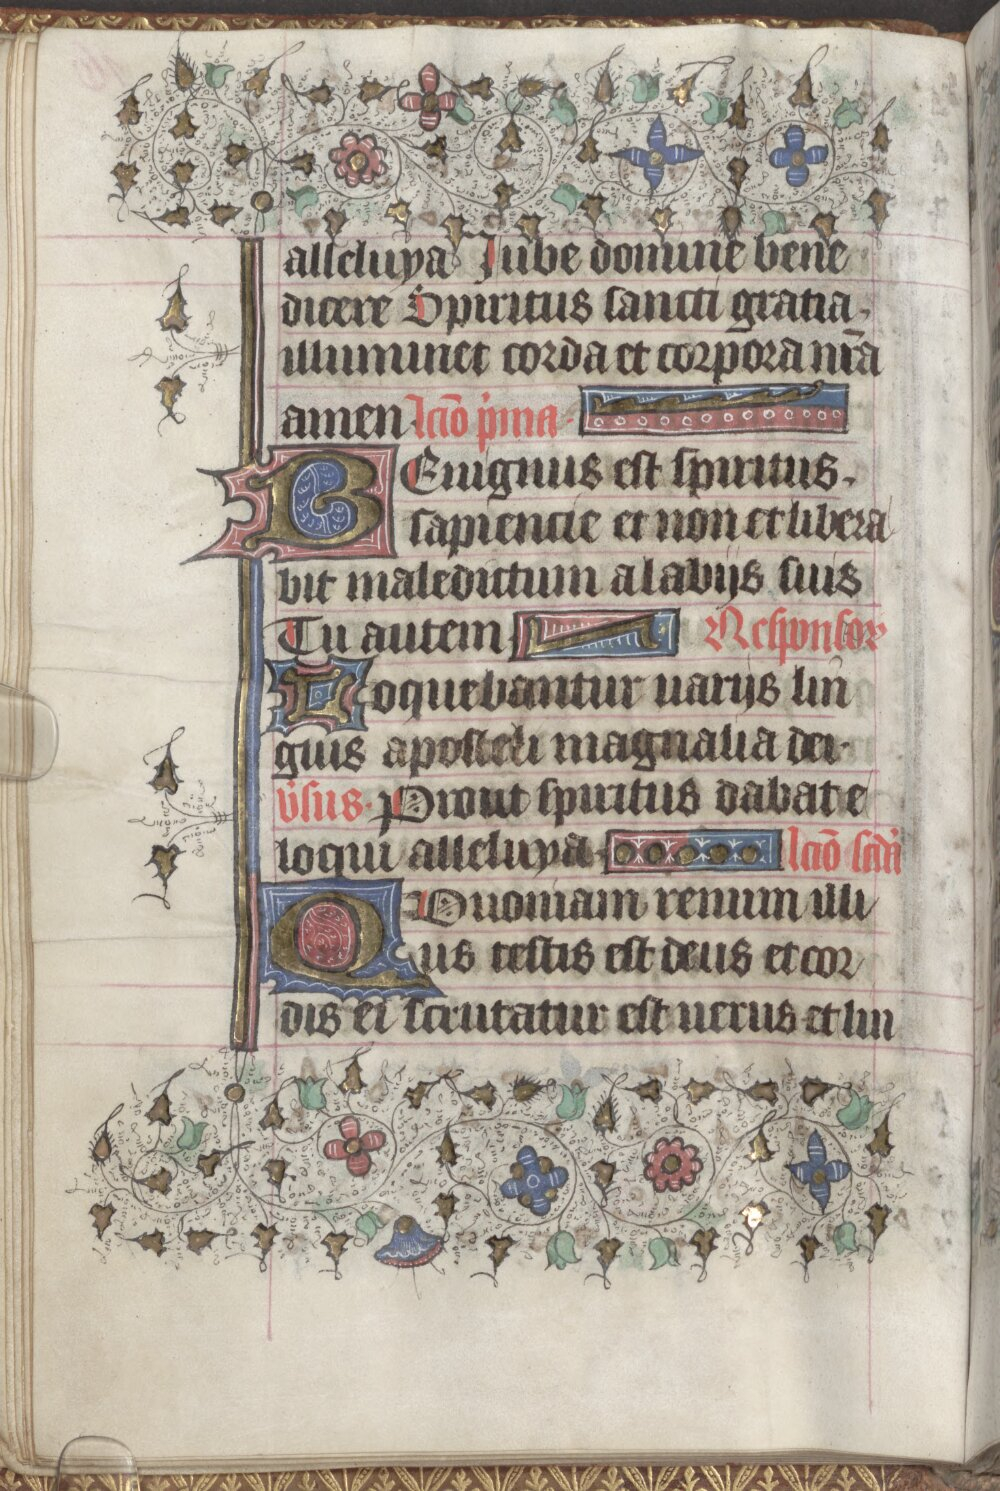 alleluya Iube domine bene
dicere Spiritus sancti gratia.
illuminet corda et corpora nr̄a
amen lcīo p̄ma
BEnignus est spiritus.
sapiencie et non et libera
bit maledictum a labijs suis
Tu autem Responsor
Loquebantur uarijs lin
guis apostoli magnalia dei.
v̄sus. Prout spiritus dabat e
loqui alleluya lcīo scd̄a
QUoniam renum illi
us testis est deus et cor
dis ei scrutatur est uerus et lin